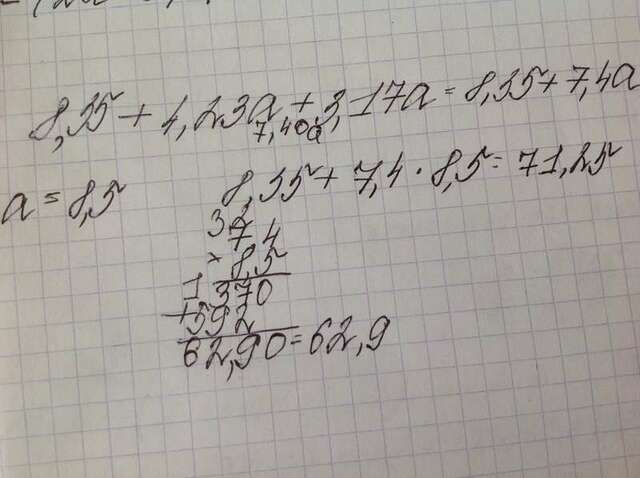 8,35 + 4,23a + 3,17a = 8,35 + 7,4a
7,40a
a = 8,5
8,35 + 7,4 · 8,5 = 71,25
32
7 4
× 8,5
1
370
+592
62,90 = 62,9